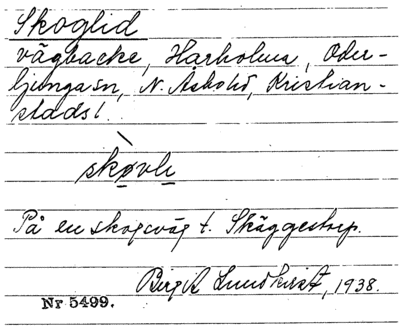 Skoglid
vägbacke, Harholma, Oder-
ljunga sn, N. Åsbo hd, Kristian-
stads l.
skovli
På en skogsväg t. Skäggestorp.
Birgit Lundkvist, 1938.
Nr 5499.